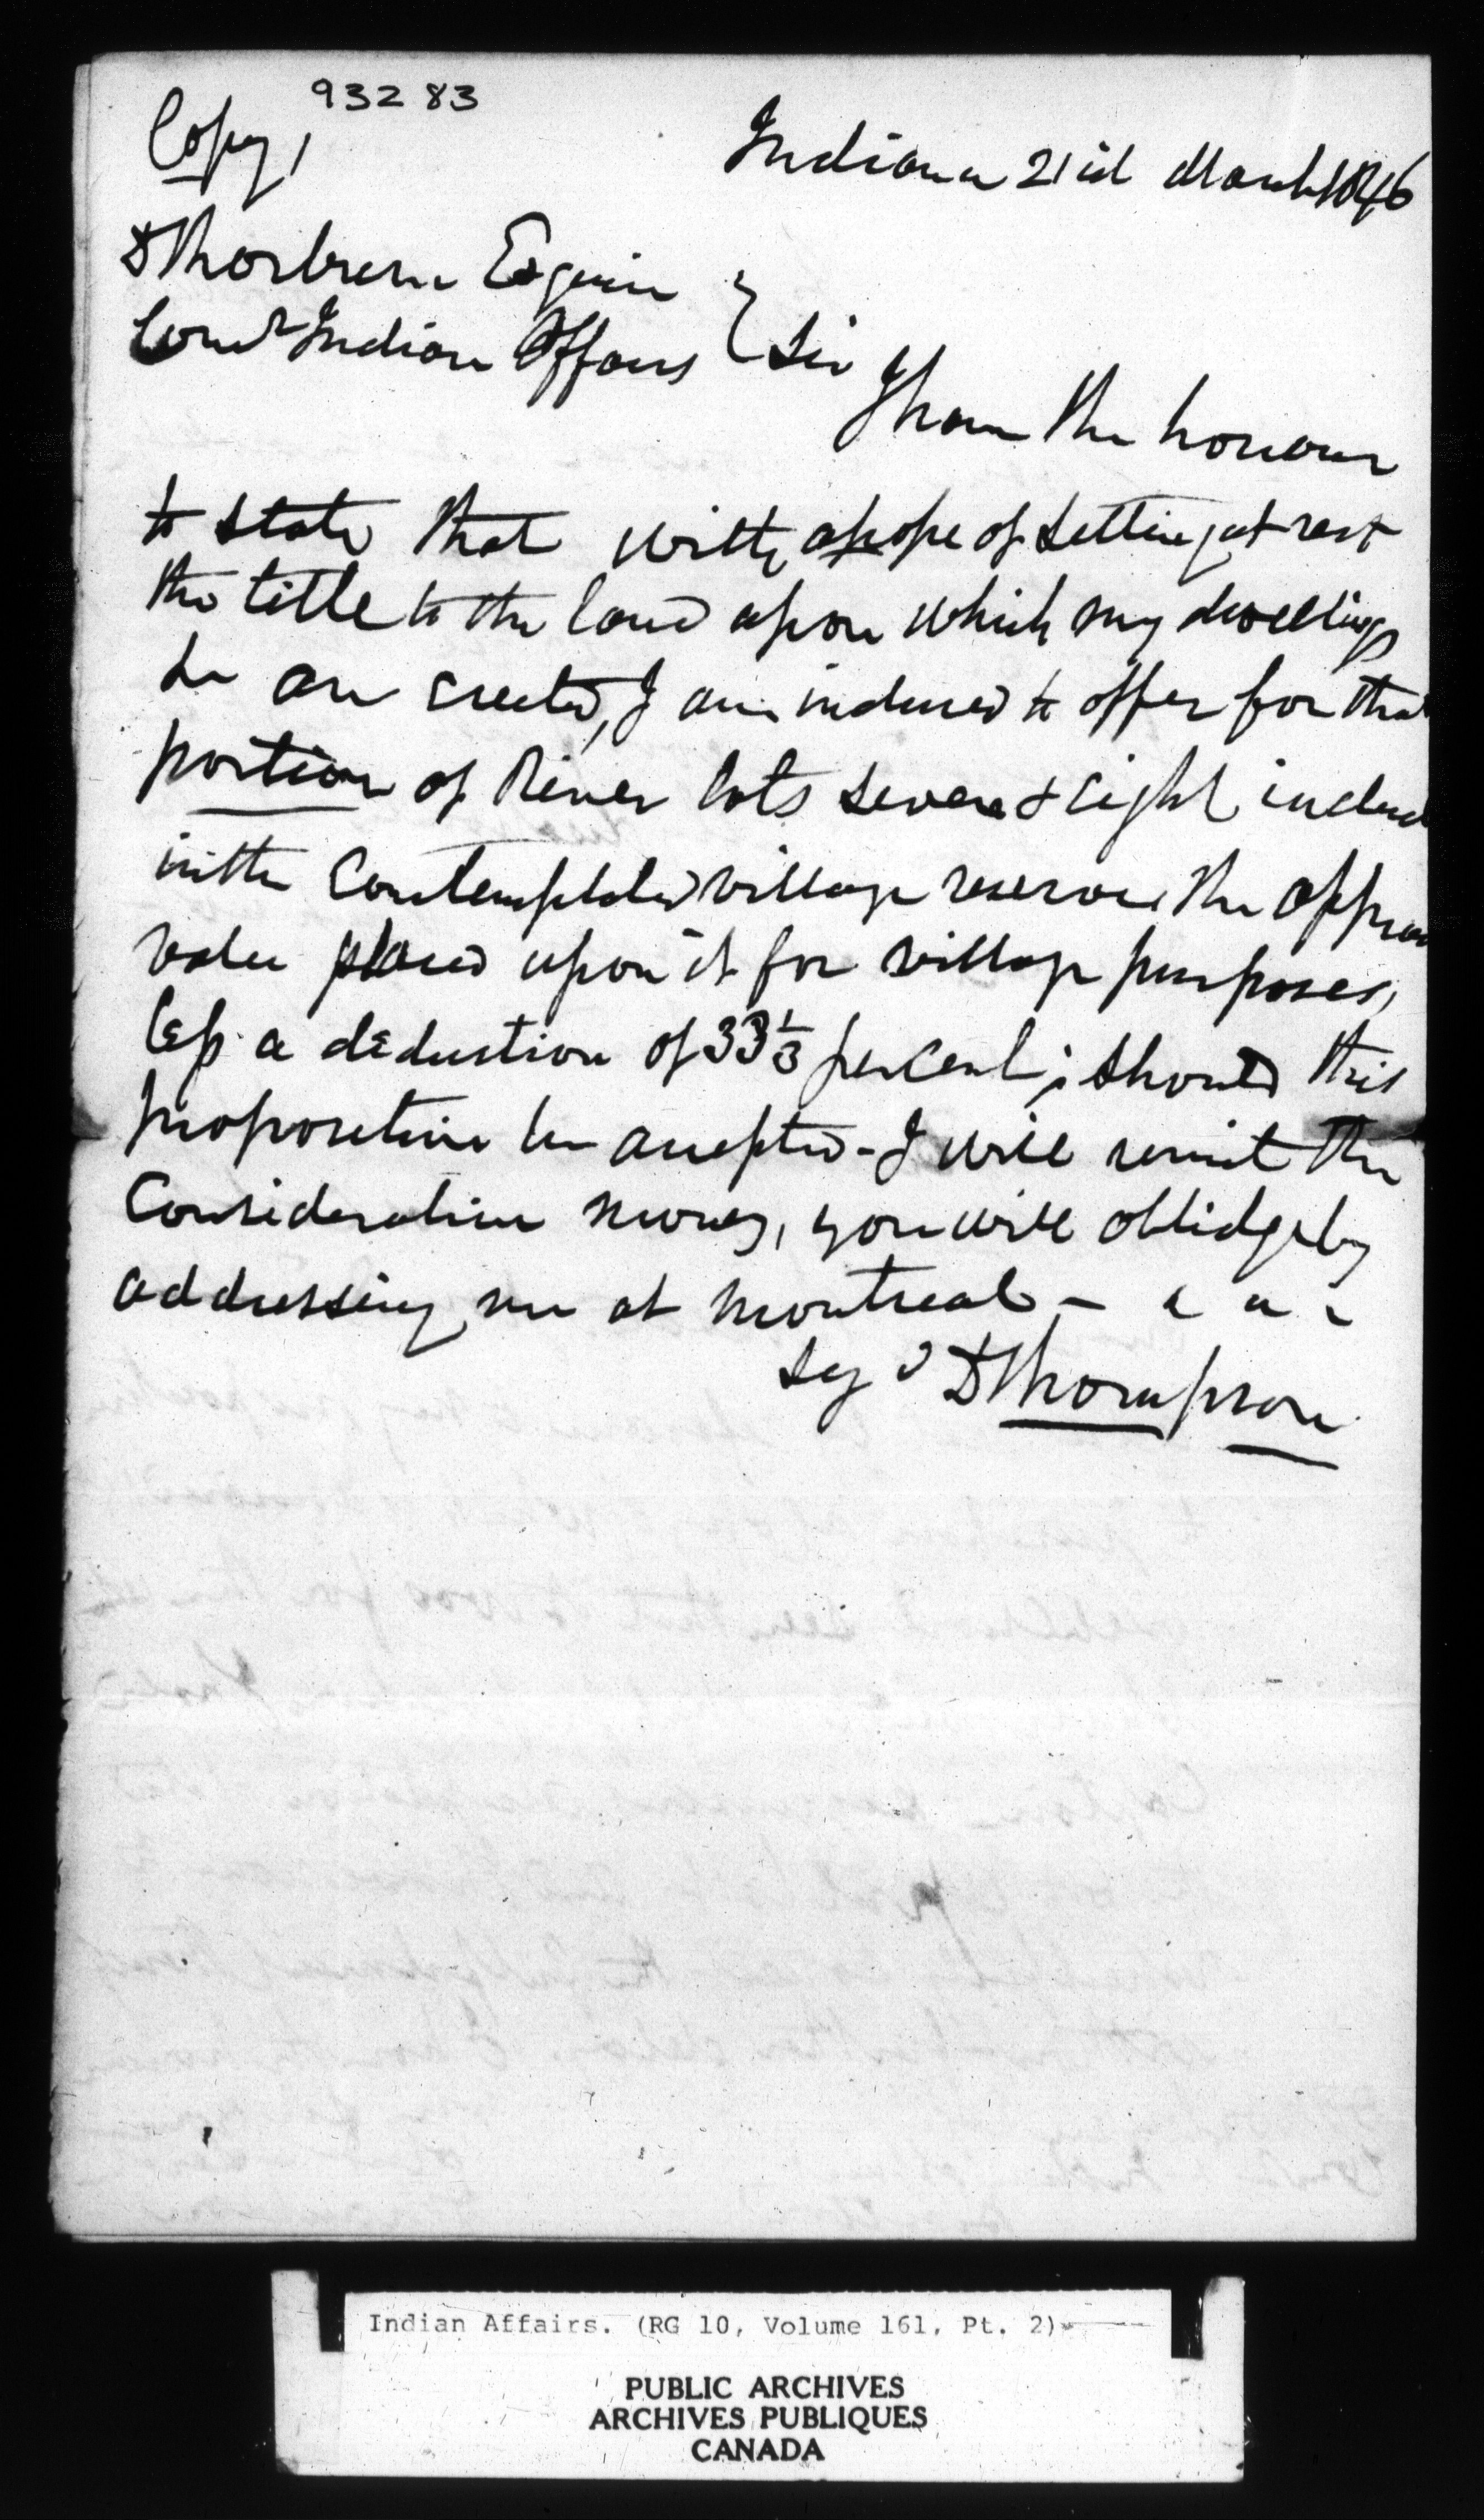 93283
Copy,
Indiana 21st March 1846
D Thorburn Esquire
Comr Indian Affairs } Sir
I have the honour
to state that with a hope of setting at rest
the title to the land upon which my dwellings
&c are erected, I am induced to offer for that
portion of River lots seven & eight includ
in the Contemplated village reserve, the apprai
value placed upon it for village purposes,
less a deduction of 33 1/3 per cent; should this
proposition be accepted - I will remit the
Consideration money, you will oblidge by
addressing me at Montreal - & & &
Sigd D Thompson
Indian Affairs. (RG 10, Volume 161, Pt. 2)
PUBLIC ARCHIVES
ARCHIVES PUBLIQUES
CANADA